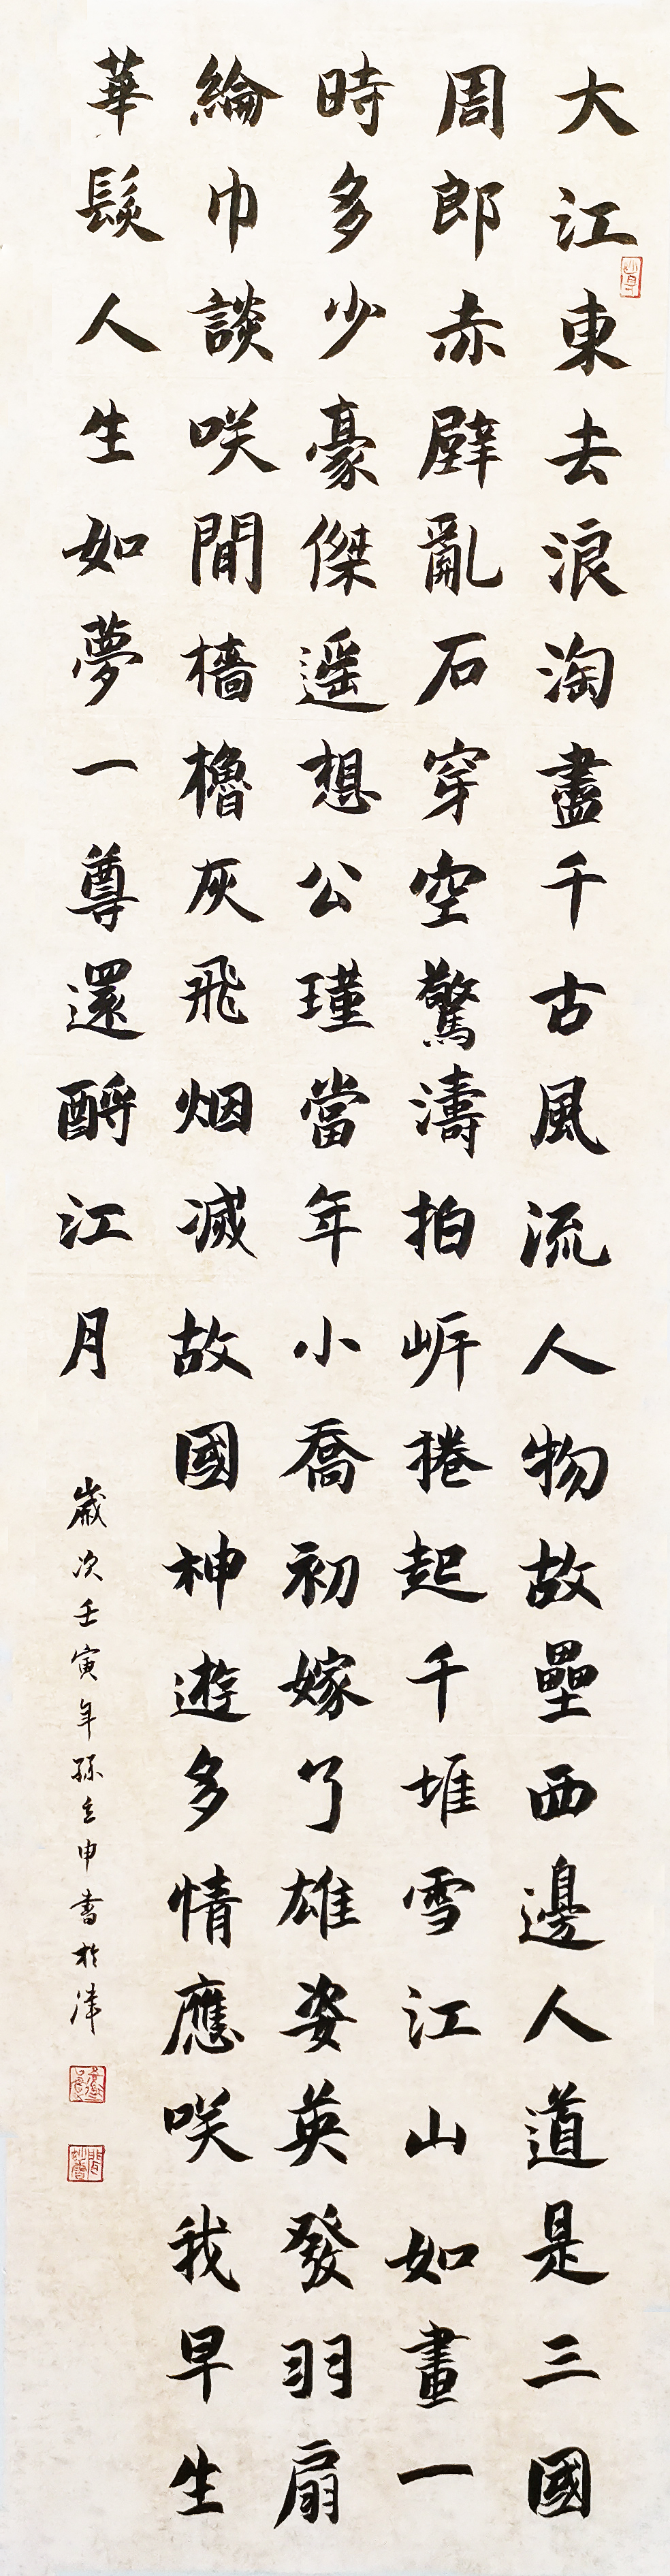 大江東去浪淘盡千古風流人物故壘西邊人道是三國
周郎赤壁亂石穿空驚濤拍岸捲起千堆雪江山如畫一
時多少豪傑遥想公瑾當年小喬初嫁了雄姿英發羽扇
綸巾談咲間檣櫓灰飛烟滅故國神遊多情應咲我早生
華髮人生如夢一尊還酹江月
歲次壬寅年孫立申書於津